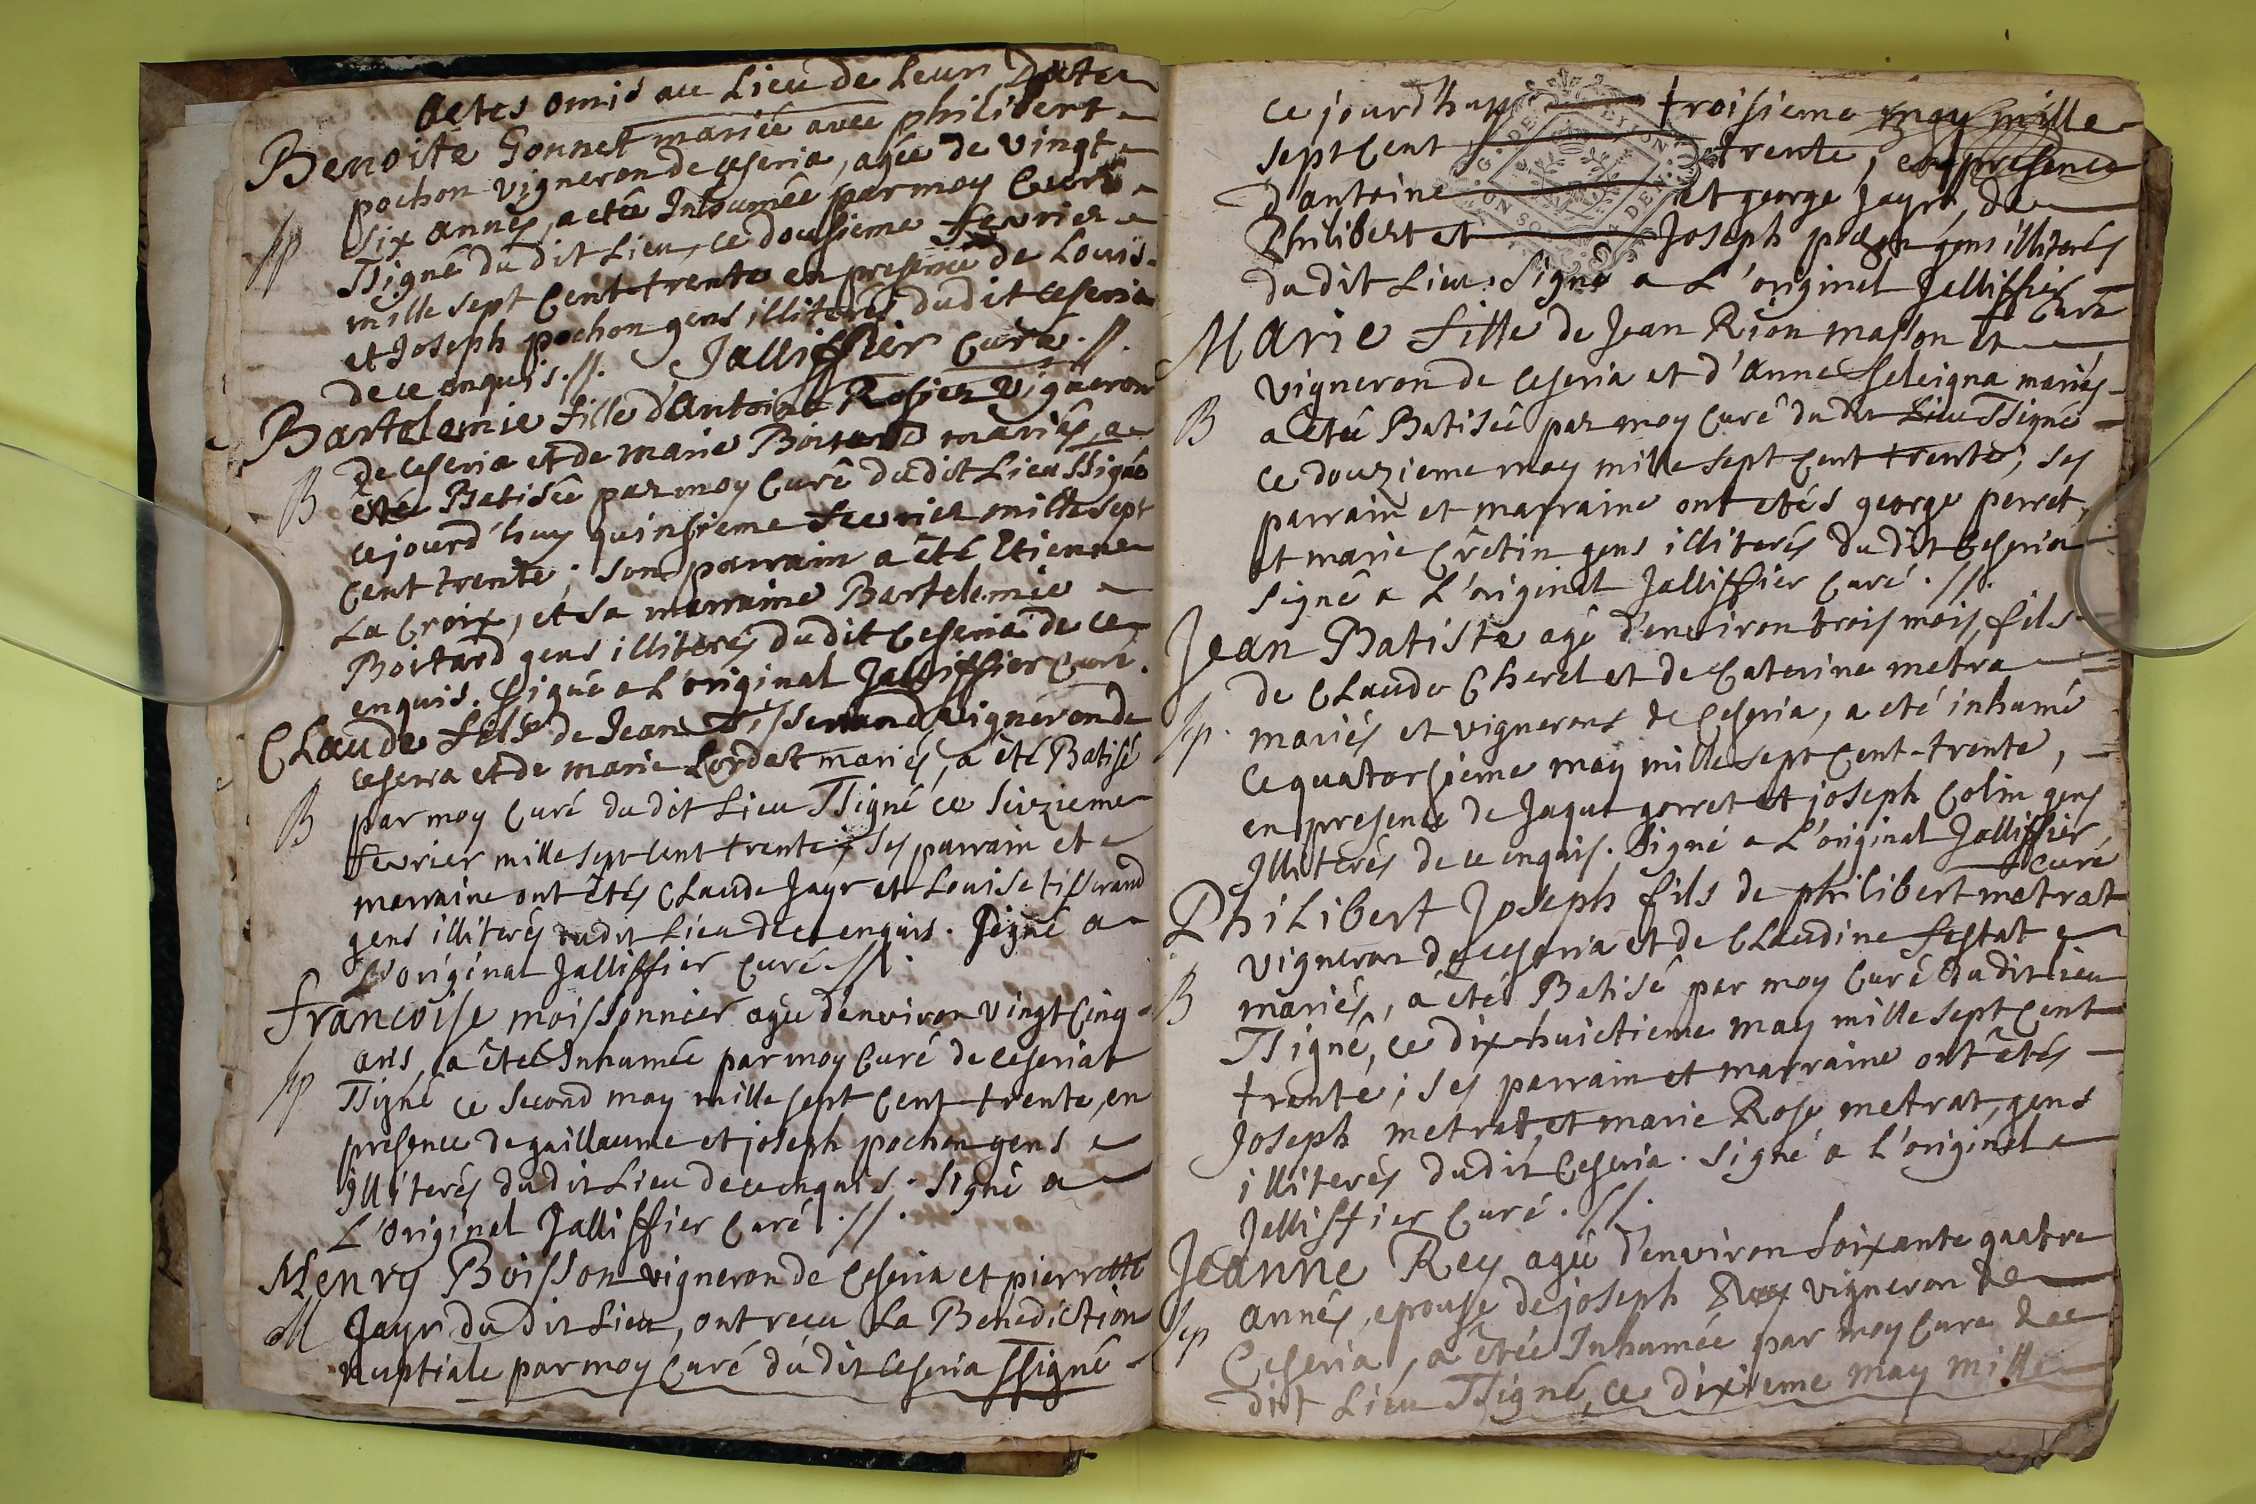 actes omis au Lieu de Leurs Dates
Benoite Gonnet mariée avec philibert
pochon vigneron de ceseria, agée de vingt
six annés, a etée Inhumée par moy Curé
Sp
ssigné du dit Lieu, ce dousieme fevrier
mille sept cent trente en presence de Louis
et Joseph pochon gens illiterés du dit ceseria
de ce enquis.//. Jalliffier Curé.//.
Bartelemie fille d'Antoine Rosier Vigneron
de ceseria et de marie Boitard mariés, a
B
eté Batisée par moy Curé du dit Lieu ssigné
cejourd'huy quinsieme fevrier mille sept
cent trente; son parrain a été Etienne
La Croix, et sa marraine Bartelemie
Boitard gens illiterés du dit Ceseria de ce
enquis. signé a L'original Jalliffier Curé.
Claude fils de Jean Tisserand, vigneron de
ceseria et de marie Cordat mariés, a été Batisé
B
par moy Curé du dit Lieu ssigné ce seizieme
fevrier mille sept cent trente; ses parrain et
marraine ont étés Claude Jayr et Louise tisserand
gens illiterés du dit Lieu de ce enquis. signé a
L'original Jalliffier Curé.//.
francoise moissonnier agée d'environ vingt Cinq
ans, a étée Inhumée par moy Curé de ceseriat
Sp
ssigné ce second may mille sept cent trente, en
presence de guillaume et joseph pochon gens
Illiterés du dit Lieu de ce enquis. signé a
L'original Jalliffier Curé.//.
Henry Boisson vigneron de Ceseria et pierrette
M
Jayr du dit Lieu, ont reçu La Benediction
nuptiale par moy Curé du dit Ceseria ssigné
ce jourd'huy troisieme may mille
sept cent trente, en presence
d'antoine et george Jayr, de
Philibert et Joseph pochon gens illiterés
du dit Lieu. signé a L'original Jalliffier
Curé
Marie fille de Jean Rion masson et
vigneron de ceseria et d'anne seleigna mariés
B
a étée Batisée par moy Curé du dit Lieu ssigné
ce douzieme may mille sept cent trente; ses
parrain et marraine ont etés george perret,
et marie Crêtin gens illiterés du dit Ceseria
signé a L'original Jalliffier Curé.//.
Jean Batiste agé d'environ trois mois, fils
de Claude Cherel et de Caterine metra
Sep.
mariés et vignerons de Ceseria, a eté inhumé
ce quatorsieme may mille sept cent-trente,
en presence de Jaque gorret et joseph Colin gens
Illiterés de ce enquis. signé a L'original Jalliffier
Curé
Philibert Joseph fils de philibert metrat
vigneron de ceseria et de Claudine festat
B
mariés, a été Batisé par moy Curé du dit lieu
ssigné, ce dix-huictieme may mille sept cent
trente; ses parrain et marraine ont étés
Joseph metrat, et marie Rose metrat, gens
illiterés du dit Ceseria. signé a L'original
Jalliffier Curé.//.
Jeanne Rey agée d'environ soixante quatre
annés, epouse de joseph vigneron de
Sep
Ceseria, a étée Inhumée par moy Curé du
dit Lieu ssigné, ce dixieme may mille